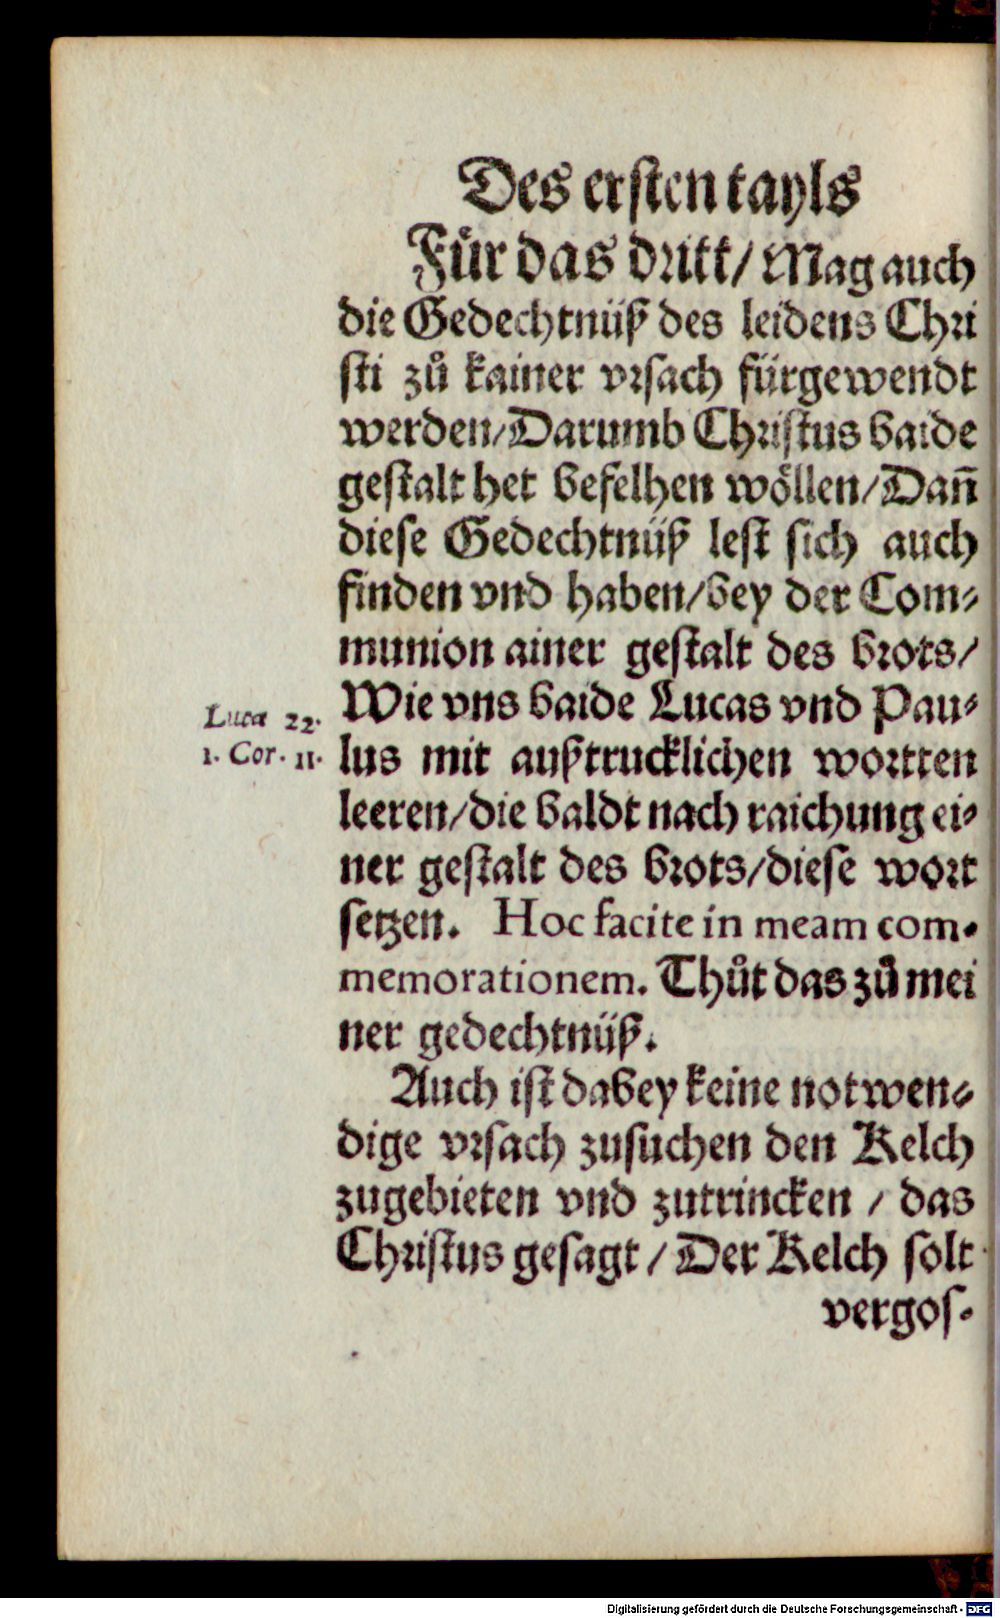 Des ersten tayls
Fůr das dritt/ Mag auch
die Gedechtnüß des leidens Chri
sti zů kainer vrsach fürgewendt
werden/Darumb Christus baide
gestalt het befelhen wöllen/Dañ
diese Gedechtnüß lest sich auch
finden vnd haben/bey der Com⸗
munion ainer gestalt des brots/
Luca 22.
1. Cor. 11.
Wie vns baide Lucas vnd Pau⸗
lus mit außtrucklichen wortten
leeren/die baldt nach raichung ei⸗
ner gestalt des brots/diese wort
setzen. Hoc facite in meam com⸗
memorationem. Thůt das zů mei
ner gedechtnüß.
Auch ist dabey keine notwen⸗
dige vrsach zusuchen den Kelch
zugebieten vnd zutrincken / das
Christus gesagt / Der Kelch solt
vergos⸗
Digitalisierung gefördert durch die Deutsche Forschungsgemeinschaft - DFG